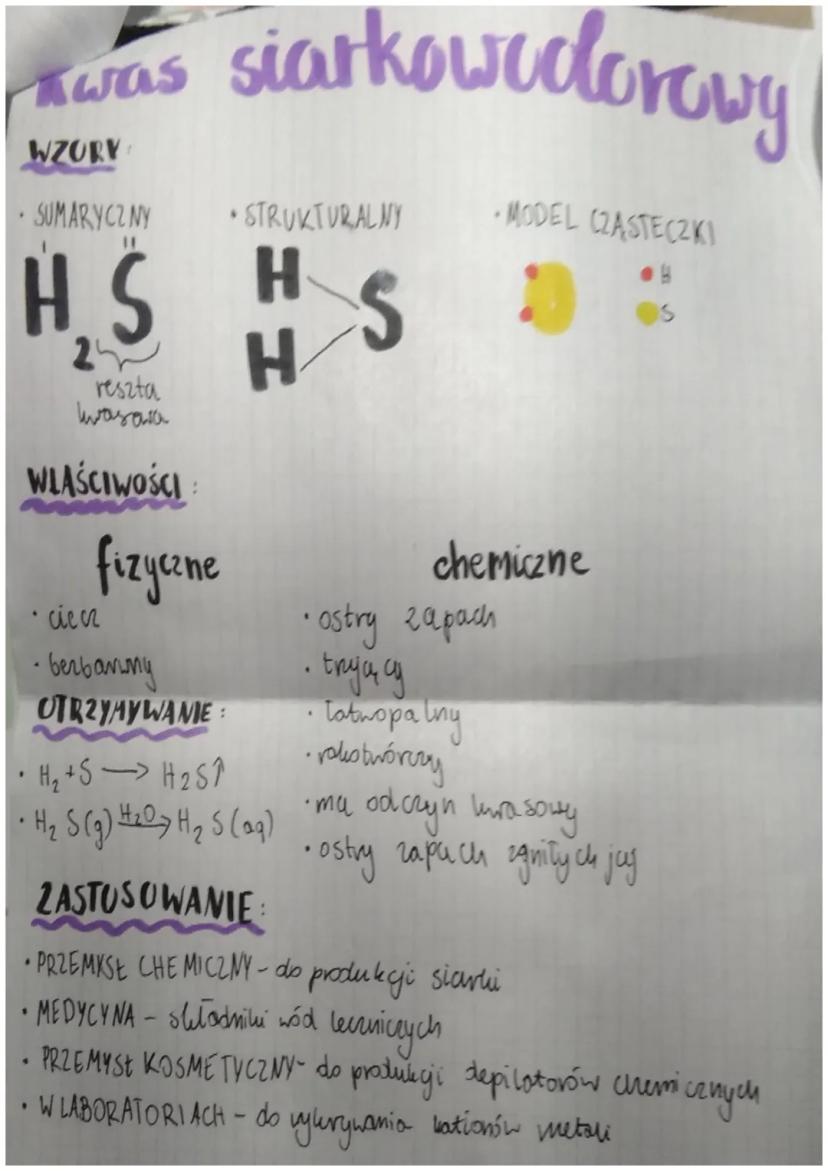 Kwas siarkowodorowy
WZORY:
• SUMARYCZNY
• STRUKTURALNY
• MODEL CZĄSTECZKI
I II
H₂S
reszta
kwasowa
H
H
S
• H
• S
WŁAŚCIWOŚCI:
fizyczne
• ciecz
• bezbarwny
chemiczne
• ostry zapach
• trujący
• łatwopalny
• rakotwórczy
• ma odczyn kwasowy
• ostry zapach zgniłych jaj
OTRZYMYWANIE:
• H₂ + S → H₂S↑
• H₂S(g) H₂O→ H₂S(aq)
ZASTOSOWANIE:
• PRZEMYSŁ CHEMICZNY - do produkcji siarki
• MEDYCYNA - składniki wód leczniczych
• PRZEMYSŁ KOSMETYCZNY - do produkcji depilatorów chemicznych
• W LABORATORIACH - do wykrywania kationów metali